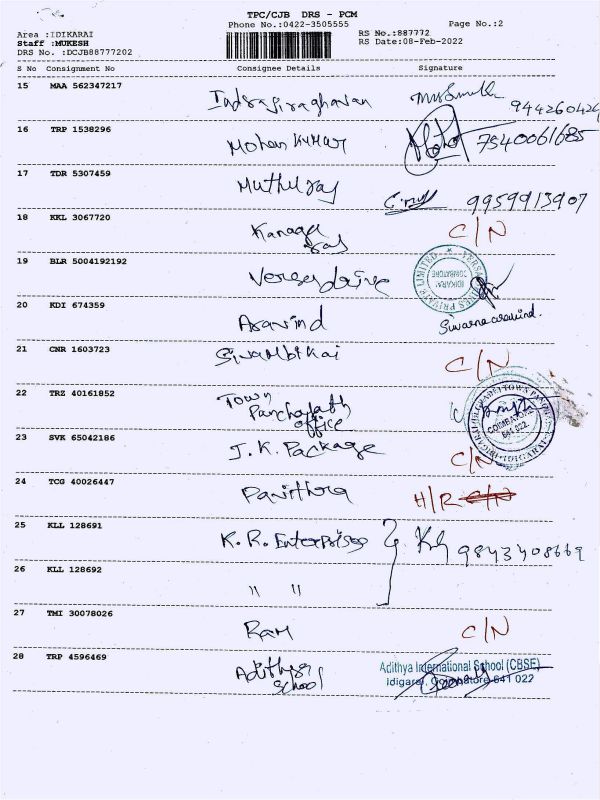 TPC/CJB DRS - PCM
Phone No.:0422-3505555 Page No.:2
Area :IDIKARAI RS No.:887772
Staff :MUKESH RS Date:08-Feb-2022
DRS No. :DCJB88777202
S No Consignment No Consignee Details Signature
15 MAA 562347217 Indrajiraghavan 944260424
16 TRP 1538296 Mohan Kumar 7540061685
17 TDR 5307459 Muthuraj 9959913907
18 KKL 3067720 Kanaga C/N
Raj
19 BLR 5004192192 Versa drive
IDIKARAI
COIMBATORE
PRIVATE LIMITED
20 KDI 674359 Aravind Suvarnaaravind.
21 CNR 1603723 Sivambikai C/N
22 TRZ 40161852 Town
Panchayath
office
COIMBATORE
641 022.
23 SVK 65042186 J.K. Package C/N
24 TCG 40026447 Pavithra H/R C/N
25 KLL 128691 K.R. Enterprises 9843408669
26 KLL 128692 " "
27 TMI 30078026 Ram C/N
28 TRP 4596469 Adithya
School
Adithya International School (CBSE)
Idigarai, Coimbatore 641 022